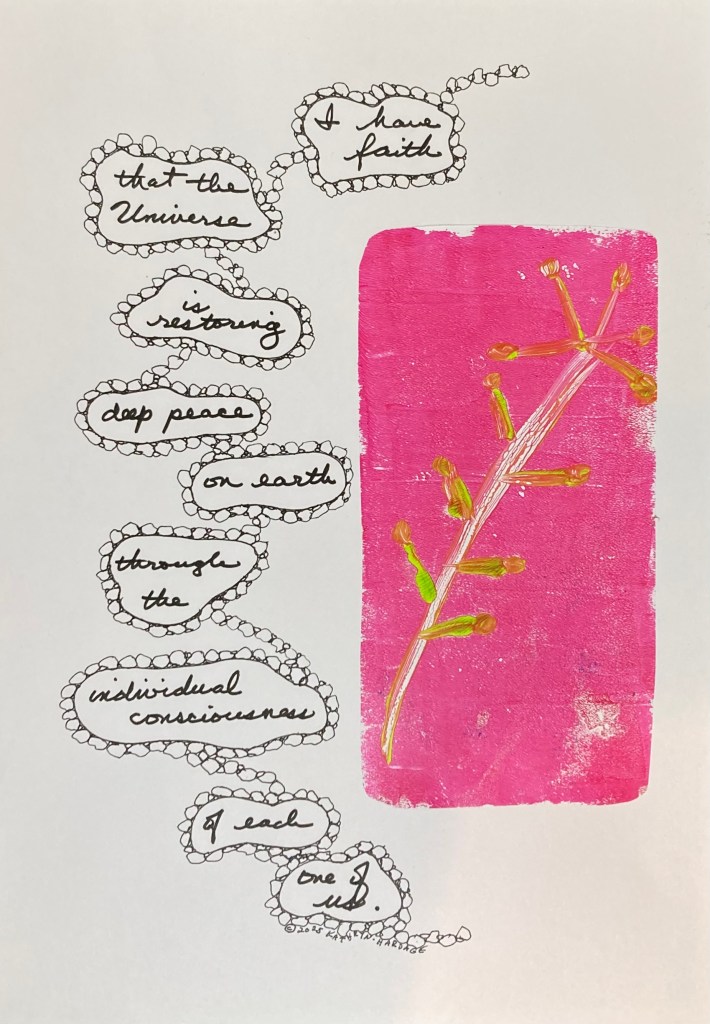 I have
faith
that the
Universe
is
restoring
deep peace
on earth
through
the
individual
consciousness
of each
one of
us.
©2025 KATHRYN HARDAGE